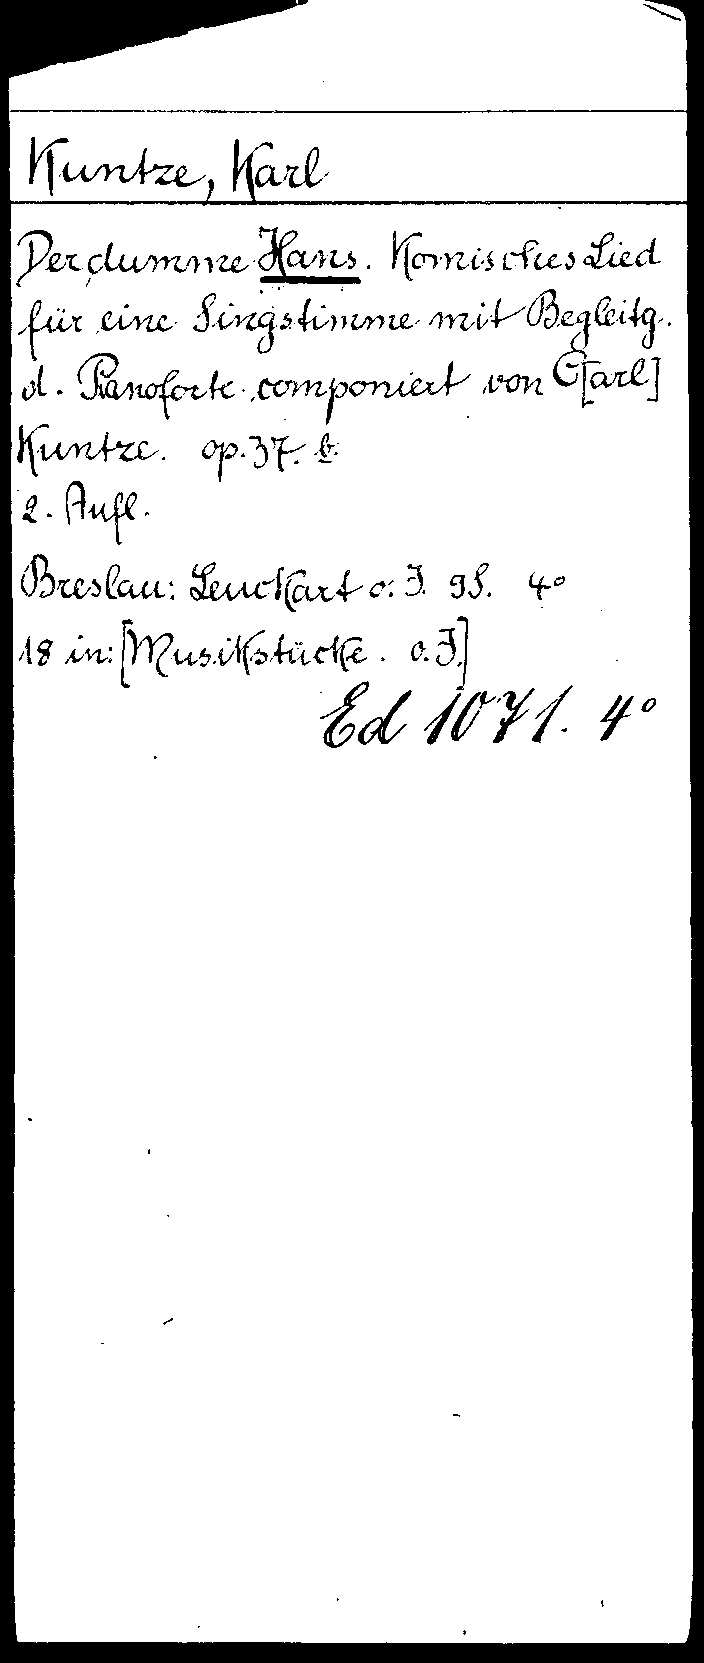 Kuntze, Karl
Der dumme Hans. Komisches Lied
für eine Singstimme mit Begleitg.
d. Pianoforte componiert von C[arl]
Kuntze. op. 37. b.
2. Aufl.
Breslau: Leuckart o. J. 9 S. 4°
18 in: [Musikstücke. o. J.]
Ed 1071. 4°